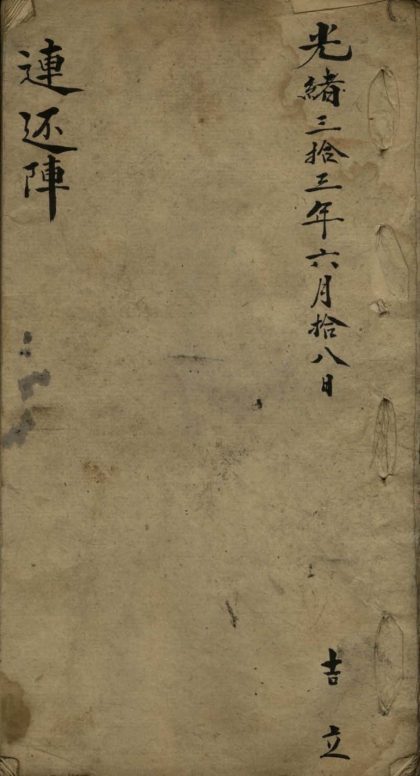 光緒三拾三年六月拾八日
吉立
連还陣